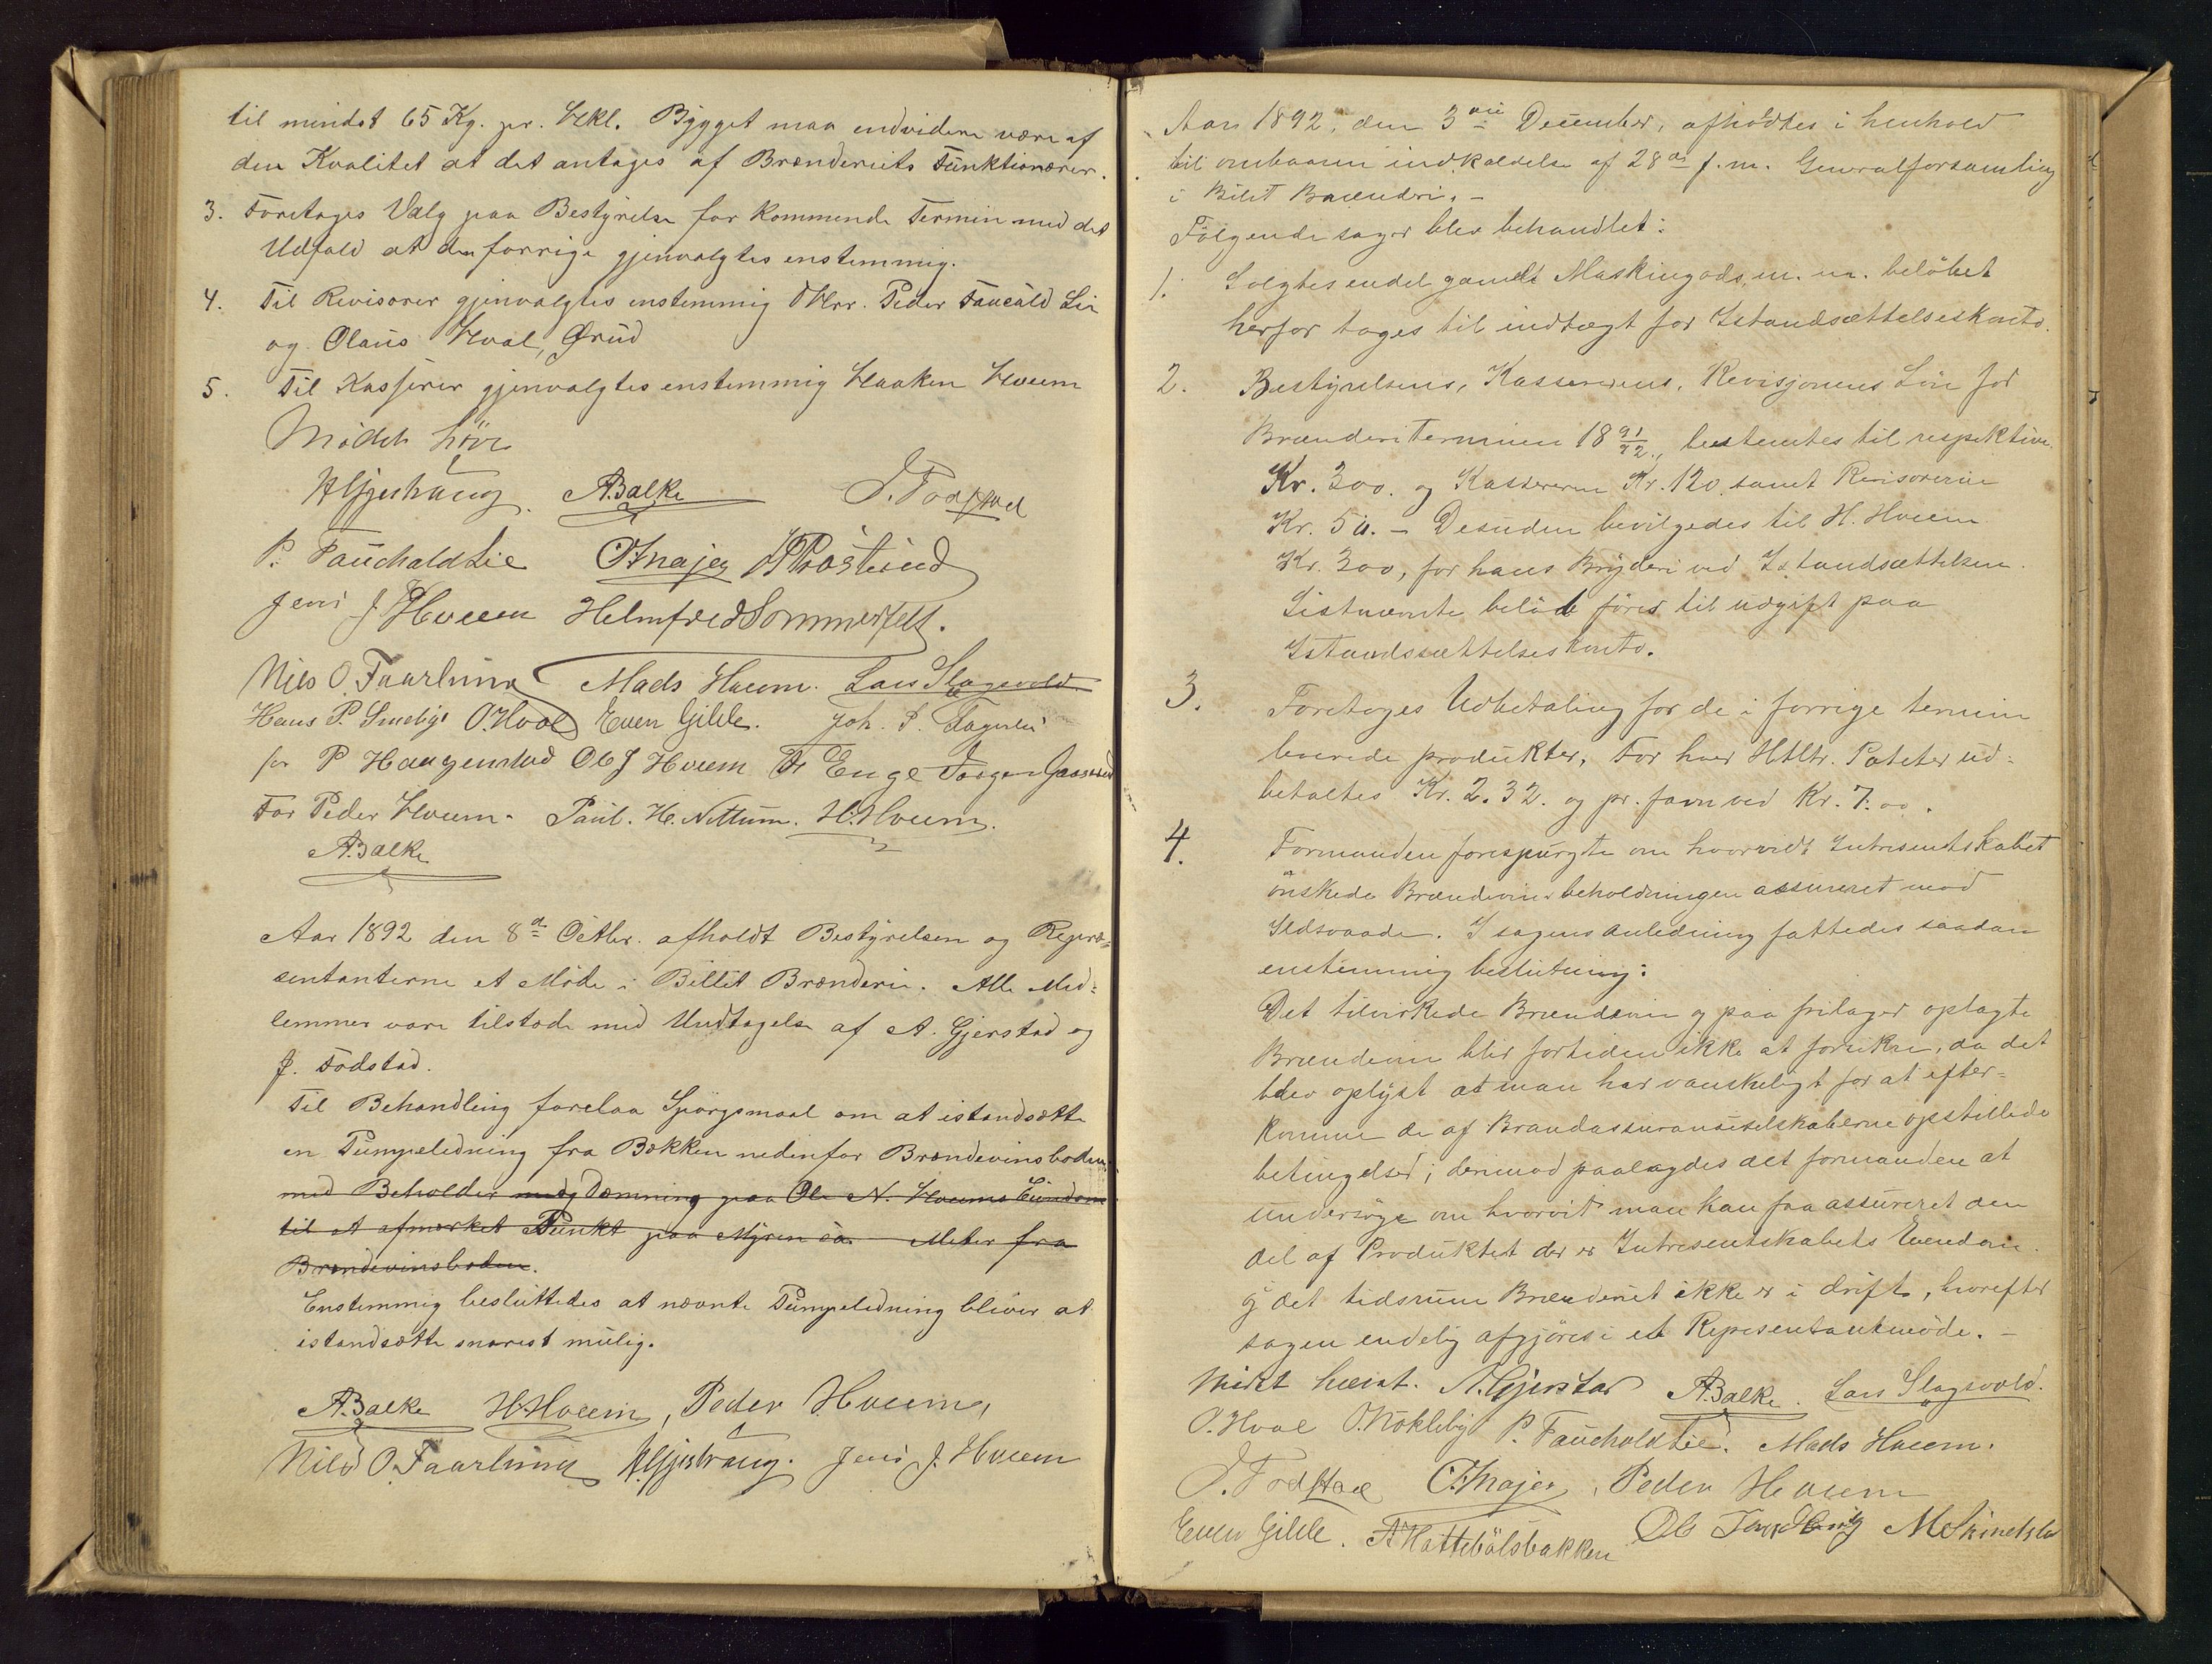 til mindst 65 Kg. pr. Hkl. Bygget maa endvidere være af
den Kvalitet at det antages af Brænderiets Funktionærer.
3. Foretages Valg paa Bestyrelse for kommende Termin med det
Udfald at den forrige gjenvalgtes enstemmig.
4. Til Revisorer gjenvalgtes enstemmig Hrr. Peder Fauchald Lie
og Olaus Hval, Grud
5. Til Kasserer gjenvalgtes enstemmig Haaken Hveem
Mødet hævet
A. Balke J. Fodstad
P. Fauchald Lie
Jens J. Hveem Helmfred Sommerfelt.
Nils O. Faarlund Mads Hveem. Lars Slagsvold
Hans P. Smeby O. Hval Even Gilde. Joh. P. Fagerli
for P Haugenstad Ole J Hveem Enge
For Peder Hveem. Paul. H. Nettum. H. Hveem.
A. Balke
Aar 1892 den 8de Octbr. afholdt Bestyrelsen og Repræ-
sentanterne et Møde i Billit Brænderi. Alle Med-
lemmer vare tilstede med Undtagelse af A. Gjerstad og
J. Fodstad.
Til Behandling forelaa Spörgsmaal om at istandsætte
en Pumpeledning fra Bækken nedenfor Brændevinsboden
med Beholder Dæmning paa Ole N. Hveems Eiendom
til et afmærket Punkt paa Myren ca. Meter fra
Brændevinsboden.
Enstemmig besluttedes at nævnte Pumpeledning bliver at
istandsætte snarest mulig.
A. Balke H. Hveem, Peder Hveem,
Nils O. Faarlund Jens J. Hveem
Aar 1892, den 3die December, afholdtes i henhold
til ombaaren indkaldelse af 28de f. m. Generalforsamling
i Bilit Brænderi. -
Fölgende sager blev behandlet:
1. Solgtes endel gamelt Maskingods m. m. belöbet
herfor tages til indtægt for Istandsættelseskonto.
2. Bestyrelsens, Kassererens, Revisjonens Lön for
Brænderiterminen 1891/92, bestemtes til respektive
Kr. 300. og Kassereren Kr. 120. samt Revisorerne
Kr. 50. - Desuden bevilgedes til H. Hveem
Kr. 300, for hans Bryderi ved Istandsættelsen.
Sistnævnte belöb föres til udgift paa
Istandssættelseskonto.
3. Foretages Udbetaling for de i forrige termin
leverede produkter, For hver Htltr. Poteter ud-
betaltes Kr. 2.32. og pr. favn ved Kr. 7.00.
4. Formanden forespurgte om hvorvidt Intresentskabet
önskede Brændevinsbeholdningen assureret mod
Ildsvaade. I sagens anledning fattedes saadan
enstemmig beslutning:
Det tilvirkede Brændevin og paa frilager oplagte
Brændevin blir fortiden ikke at forsikre, da det
blev oplyst at man har vanskeligt for at efter-
komme de af Brandassuranseselskaberne opstillede
betingelser; derimod paalagdes det formanden at
undersöge om hvorvit man kan faa assureret den
del af Produktet der er Intresentskabets Eiendom
i det tidsrum Brænderiet ikke er i drift, hvorefter
sagen endelig afgjöres i et Representantmöde. -
Mödet hævet. A. Gjerstad A. Balke. Lars Slagsvold.
O. Hval O. Nökleby P. Fauchald Lie. Mads Hveem.
J. Fodstad Peder Hveem
Even Gilde. A Hattebölsbakken Ole